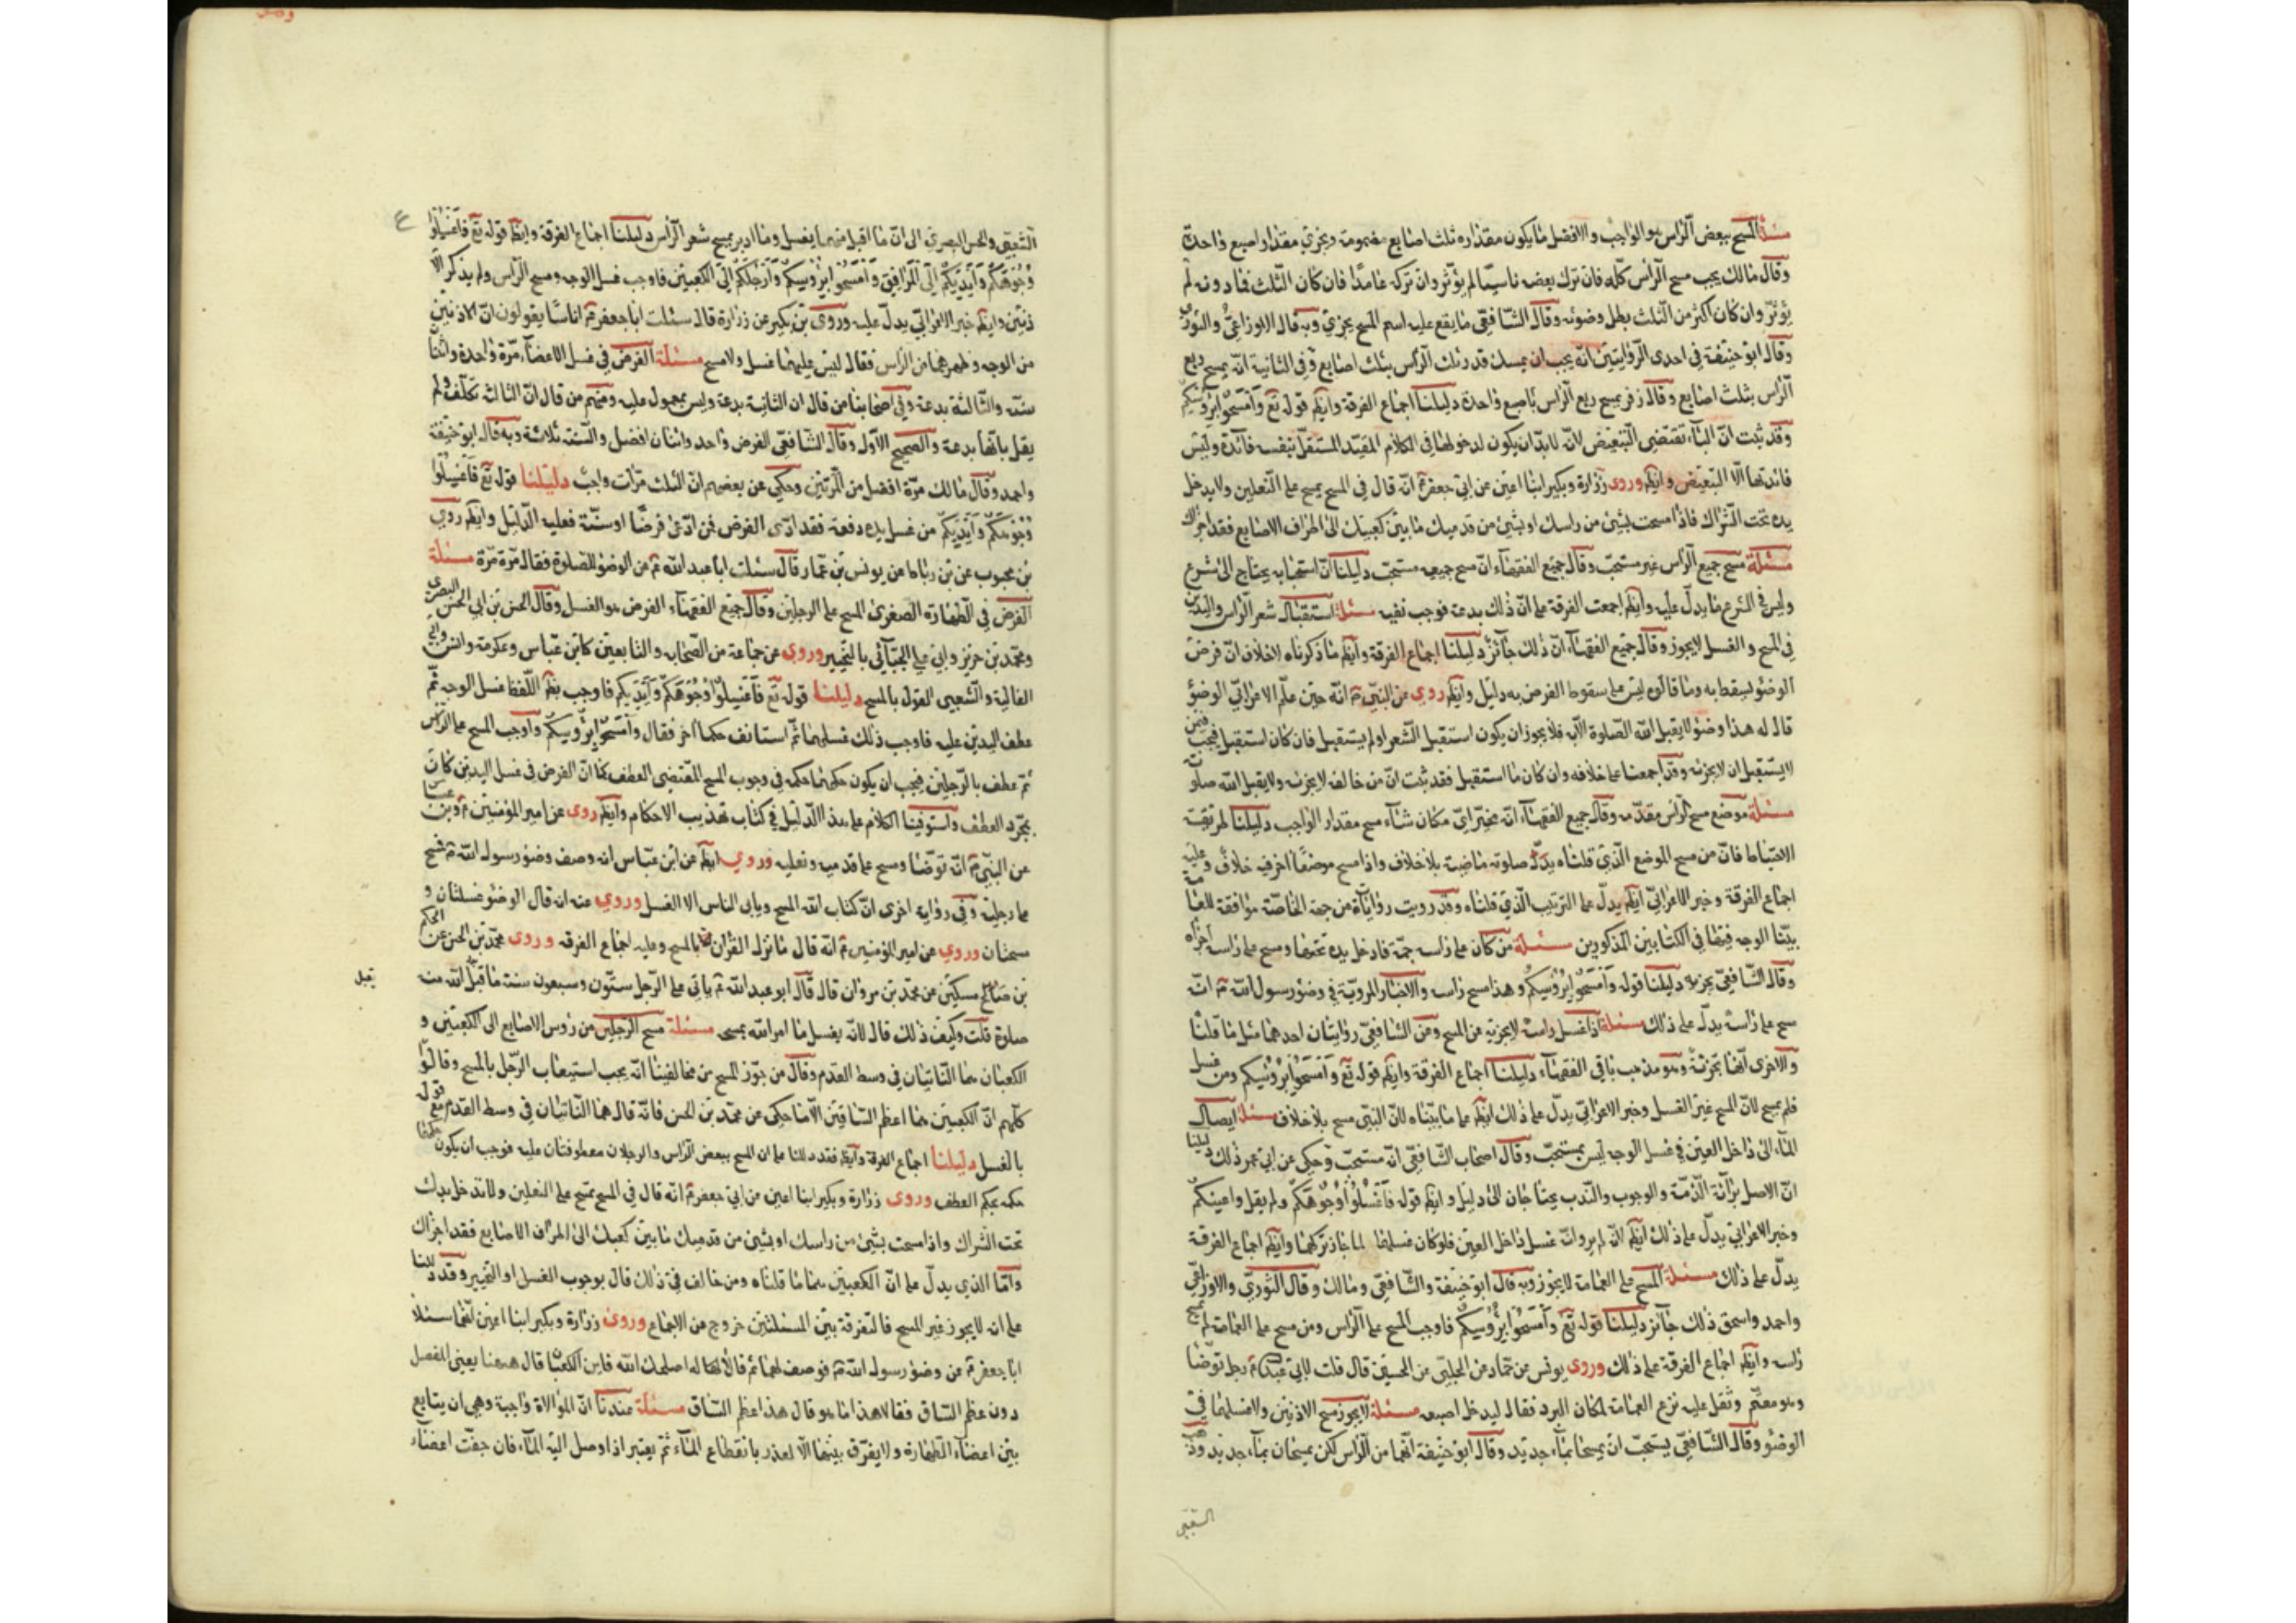 مسئلة المسح ببعض الرّاس هو الواجب والافضل ما يكون مقداره ثلث اصابع مضمومة ويجزي مقدار اصبع واحدة
وقال مالك يجب مسح الرأس كلّه فان ترك بعضه ناسيا لم يؤثر وان تركه عامدا فان كان الثلث فما دونه لم
يؤثر وان كان اكثر من الثلث بطل وضوئه وقال الشافعي ما يقع عليه اسم المسح يجزي وبه قال الاوزاعي والثوري
وقال ابو حنيفة في احدى الروايتين انه يجب ان يمسك قدر ثلث الرأس بثلث اصابع وفي الثانية انه يمسح ربع
الرأس بثلث اصابع وقال زفر يمسح ربع الرأس باصبع واحدة دليلنا اجماع الفرقة وايضا قوله تع وامسحوا برؤسكم
وقد ثبت ان الباء تقتضي التبعيض لانه لابد ان يكون لدخولها في الكلام المفيد المستقل بنفسه فائدة وليس
فائدتها الا التبعيض وايضا وروى زرارة وبكير ابنا اعين عن ابي جعفر ع انه قال في المسح يمسح على النعلين ولا يدخل
يده تحت الشراك فاذا مسحت بشئ من راسك او بشئ من قدميك ما بين كعبيك الى اطراف الاصابع فقد اجزاك
مسئلة مسح جميع الراس غير مستحب وقال جميع الفقهاء ان مسح جميعه مستحب دليلنا ان استحبابه يحتاج الى شرع
وليس في الشرع ما يدل عليه وايضا اجمعت الفرقة على ان ذلك بدعة فوجب نفيه مسئلة استقبال شعر الراس واليدين
في المسح والغسل لا يجوز وقال جميع الفقهاء ان ذلك جائز دليلنا اجماع الفرقة وايضا ما ذكرناه لا خلاف ان فرض
الوضوء يسقط به وما قالوه ليس على سقوط الفرض به دليل وايضا روي عن النبي ص انه حين علم الاعرابي الوضوء
قال له هذا وضوء لا يقبل الله الصلوة الا به فلا يجوز ان يكون استقبل الشعر او لم يستقبل فان كان استقبل فيجب فيمن
لا يستقبل ان لا يجزئه وقد اجمعنا على خلافه وان كان ما استقبل فقد ثبت ان من خالفه لا يجزئه ولا يقبل الله صلوته
مسئلة موضع مسح الراس مقدمه وقال جميع الفقهاء انه مخير اي مكان شاء مسح مقدار الواجب دليلنا طريقة
الاحتياط فان من مسح الموضع الذي قلناه صلوته ماضية بلا خلاف واذا مسح موضعا اخر فيه خلاف وعليه
اجماع الفرقة وخبر الاعرابي ايضا يدل على الترتيب الذي قلناه وقد رويت روايات من جهة الخاصة موافقة للعامة
بينا الوجه فيها في الكتابين المذكورين مسئلة من كان على راسه جمة فادخل يده تحتها ومسح على راسه اجزاه
وقال الشافعي لا يجزيه دليلنا قوله وامسحوا برؤسكم وهذا مسح راسه والاخبار المروية في وضوء رسول الله ص انه
مسح على راسه يدل على ذلك مسئلة اذا غسل راسه لا يجزيه عن المسح وعن الشافعي روايتان احدهما مثل ما قلنا
والاخرى انها تجزئه وهو مذهب باقي الفقهاء دليلنا اجماع الفرقة وايضا قوله تع وامسحوا برؤسكم ومن غسل
فلم يمسح لان المسح غير الغسل وخبر الاعرابي يدل على ذلك ايضا على ما بيناه لان النبي مسح بلا خلاف مسئلة ايصال
الماء الى داخل العين في غسل الوجه ليس بمستحب وقال اصحاب الشافعي انه مستحب وحكي عن ابن عمر ذلك دليلنا
ان الاصل برائة الذمة والوجوب والندب يحتاجان الى دليل وايضا قوله فاغسلوا وجوهكم ولم يقل واعينكم
وخبر الاعرابي يدل على ذلك ايضا لانه لم يرو انه غسل داخل العين فلو كان غسلها لما جاز تركها وايضا اجماع الفرقة
يدل على ذلك مسئلة المسح على العمامة لا يجوز وبه قال ابو حنيفة والشافعي ومالك وقال الثوري والاوزاعي
واحمد واسحق ذلك جائز دليلنا قوله تع وامسحوا برؤسكم فاوجب المسح على الراس ومن مسح على العمامة لم يمسح
راسه وايضا اجماع الفرقة على ذلك وروى يونس عن حماد عن الحسين قال قلت لابي عبدالله ع رجل توضأ
وهو معتم وثقل عليه نزع العمامة لمكان البرد فقال ليدخل اصبعه مسئلة لا يجوز مسح الاذنين ولا غسلهما في
الوضوء وقال الشافعي يستحب ان يمسحا بماء جديد وقال ابو حنيفة انهما من الراس لكن يمسحان بماء جديد وذهب
الشعبي
الشعبي والحسن البصري الى ان ما اقبل منهما يغسل وما ادبر يمسح شعر الراس دليلنا اجماع الفرقة وايضا قوله تع فاغسلوا
وجوهكم وايديكم الى المرافق وامسحوا برؤسكم وارجلكم الى الكعبين فاوجب غسل الوجه ومسح الراس ولم يذكر الا
ذنين وايضا خبر الاعرابي يدل عليه وروى بن بكير عن زرارة قال سئلت ابا جعفر ع ان اناسا يقولون ان الاذنين
من الوجه وظهرهما من الراس فقال ليس عليهما غسل ولا مسح مسئلة الفرض في غسل الاعضاء مرة واحدة واثنتان
سنة والثالثة بدعة وفي اصحابنا من قال ان الثانية بدعة وليس بمعمول عليه ومنهم من قال ان الثالثة تكلف ولم
يقل بانها بدعة والصحيح الاول وقال الشافعي الفرض واحد واثنان افضل والسنة ثلاثة وبه قال ابو حنيفة
واحمد وقال مالك مرة افضل من المرتين وحكي عن بعضهم ان الثلث مرات واجب دليلنا قوله تع فاغسلوا
وجوهكم وايديكم من غسل يده دفعة فقد ادى الفرض فمن ادعى فرضا او سنة فعليه الدليل وايضا روى
بن محبوب عن بن رباط عن يونس بن عمار قال سئلت ابا عبد الله ع عن الوضوء للصلوة فقال مرة مرة مسئلة
الفرض في الطهارة الصغرى المسح على الرجلين وقال جميع الفقهاء الفرض هو الغسل وقال الحسن بن ابي الحسن البصري
ومحمد بن جرير وابي علي الجبائي بالتخيير وروي عن جماعة من الصحابة والتابعين كابن عباس وعكرمة وانس وابي
العالية والشعبي القول بالمسح دليلنا قوله تع فاغسلوا وجوهكم وايديكم فاوجب بظاهر اللفظ غسل الوجه ثم
عطف اليدين عليه فاوجب ذلك غسلهما ثم استانف حكما اخر فقال وامسحوا برؤسكم واوجب المسح على الراس
ثم عطف بالرجلين فيجب ان يكون حكمهما حكمه في وجوب المسح المقتضى العطف كما ان الفرض في غسل اليدين كان
بمجرد العطف واستوفينا الكلام على هذا الدليل في كتاب تهذيب الاحكام وايضا روى عن امير المؤمنين ع وبن عباس
عن النبي ص انه توضا ومسح على قدميه ونعليه وروي ايضا عن ابن عباس انه وصف وضوء رسول الله ص فمسح
على رجليه وفي رواية اخرى ان كتاب الله المسح ويابى الناس الا الغسل وروي عنه انه قال الوضوء غسلتان و
مسحتان وروي عن امير المؤمنين ع انه قال ما نزل القران الا بالمسح وعليه اجماع الفرقة وروى محمد بن الحسن عن الحكم
بن مسكين عن محمد بن مروان قال قال ابو عبد الله ع ياتي على الرجل ستون وسبعون سنة ما قبل الله منه
يقبل
صلوة قلت وكيف ذلك قال لانه يغسل ما امر الله بمسحه مسئلة مسح الرجلين من رؤس الاصابع الى الكعبين و
الكعبان هما الناتيان في وسط القدم وقال من جوز المسح من مخالفينا انه يجب استيعاب الرجل بالمسح وقالوا
كلهم ان الكعبين هما اعظم الساقين الا ما حكي عن محمد بن الحسن فانه قال هما الناتيان في وسط القدم مع قوله
بالغسل دليلنا اجماع الفرقة وايضا فقد دللنا على ان المسح ببعض الراس والرجلان معطوفتان عليه فوجب ان يكون حكمهما
حكمه بحكم العطف وروى زرارة وبكير ابنا اعين عن ابي جعفر ع انه قال في المسح تمسح على النعلين ولا تدخل يدك
تحت الشراك واذا مسحت بشئ من راسك او بشئ من قدميك ما بين كعبك الى اطراف الاصابع فقد اجزاك
واما الذي يدل على ان الكعبين هما ما قلناه ومن خالف في ذلك قال بوجوب الغسل او التخيير وقد دللنا
على انه لا يجوز غير المسح فالتفرقة بين المسئلتين خروج من الاجماع وروى زرارة وبكير ابنا اعين انهما سئلا
ابا جعفر ع عن وضوء رسول الله ص فوصف لهما ثم قالا له اصلحك الله فاين الكعبان قال ههنا يعني المفصل
دون عظم الساق فقالا هذا ما هو قال هذا عظم الساق مسئلة عندنا ان الموالاة واجبة وهي ان يتابع
بين اعضاء الطهارة ولا يفرق بينهما الا لعذر بانقطاع الماء ثم يعتبر اذا وصل اليه الماء فان جفت اعضاء